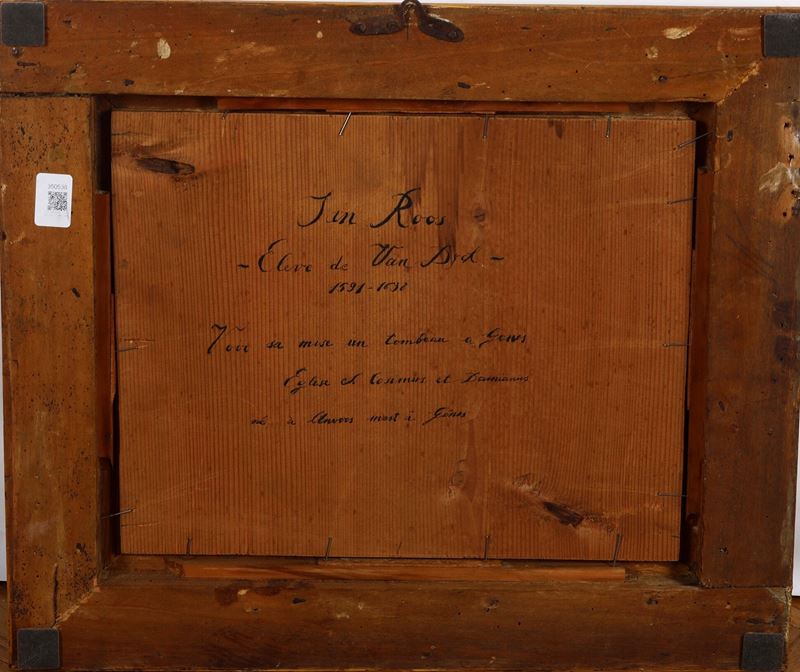 350538
Jan Roos
- Eleve de Van Dyck -
1591-1638
Voir sa mise un tombeau a Genes
Eglise St Cosmus et Damianus
né à Anvers mort à Gênes